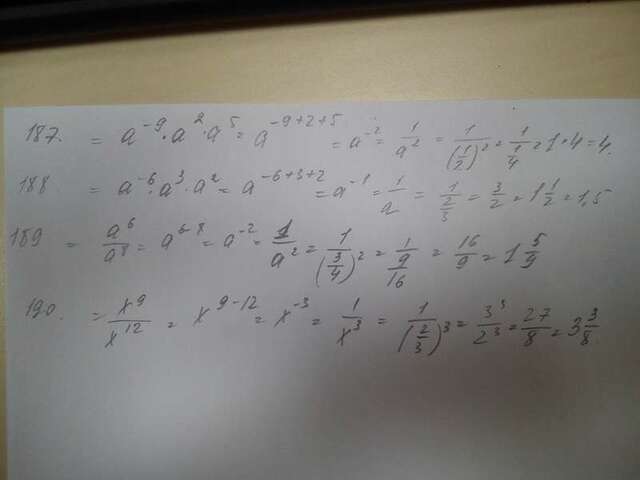 187. = a^-9 · a^2 · a^5 = a^-9+2+5 = a^-2 = 1/a^2 = 1/(1/2)^2 = 1/(1/4) = 1 · 4 = 4.
188 = a^-6 · a^3 · a^2 = a^-6+3+2 = a^-1 = 1/a = 1/(2/3) = 3/2 = 1 1/2 = 1,5
189 = a^6/a^8 = a^6-8 = a^-2 = 1/a^2 = 1/(3/4)^2 = 1/(9/16) = 16/9 = 1 5/9
190. = x^9/x^12 = x^9-12 = x^-3 = 1/x^3 = 1/(2/3)^3 = 3^3/2^3 = 27/8 = 3 3/8